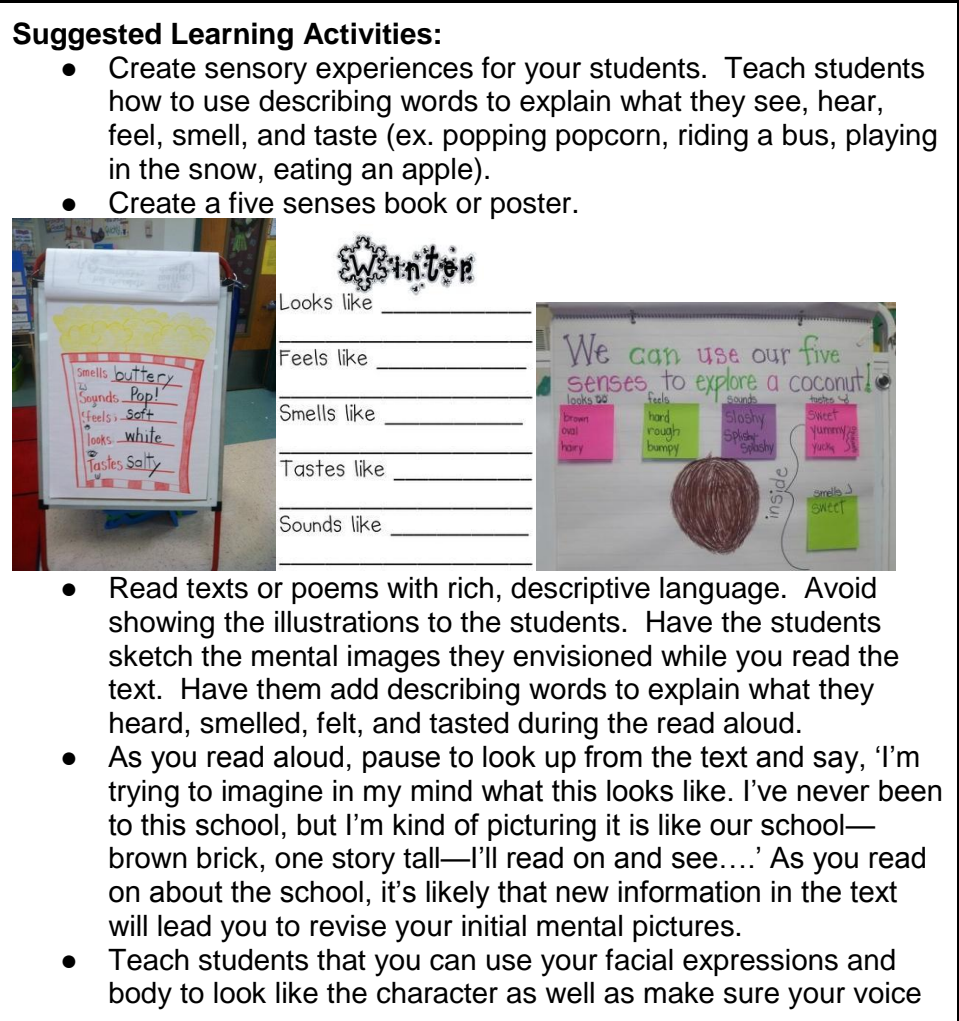 Suggested Learning Activities:
● Create sensory experiences for your students. Teach students
how to use describing words to explain what they see, hear,
feel, smell, and taste (ex. popping popcorn, riding a bus, playing
in the snow, eating an apple).
● Create a five senses book or poster.
Smells buttery
Sounds Pop!
feels soft
looks white
Tastes Salty
Winter
Looks like
Feels like
Smells like
Tastes like
Sounds like
We can use our five
senses to explore a coconut!
looks
brown
oval
hairy
feels
hard
rough
bumpy
sounds
Sloshy
Splishy
Splashy
tastes
sweet
yummy
yucky
inside
smells
sweet
● Read texts or poems with rich, descriptive language. Avoid
showing the illustrations to the students. Have the students
sketch the mental images they envisioned while you read the
text. Have them add describing words to explain what they
heard, smelled, felt, and tasted during the read aloud.
● As you read aloud, pause to look up from the text and say, ‘I’m
trying to imagine in my mind what this looks like. I’ve never been
to this school, but I’m kind of picturing it is like our school—
brown brick, one story tall—I’ll read on and see….’ As you read
on about the school, it’s likely that new information in the text
will lead you to revise your initial mental pictures.
● Teach students that you can use your facial expressions and
body to look like the character as well as make sure your voice